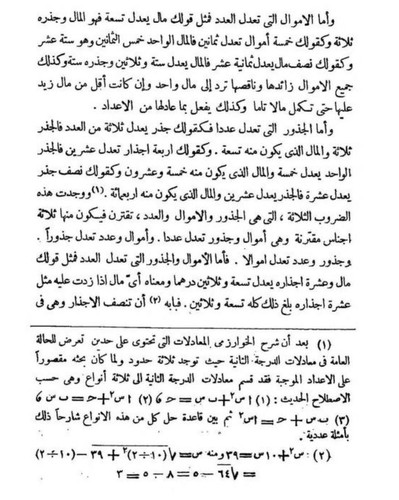 وأما الاموال التى تعدل العدد فمثل قولك مال يعدل تسعة فهو المال وجذره
ثلاثة وكقولك خمسة أموال تعدل ثمانين فالمال الواحد خمس الثمانين وهو ستة عشر
وكقولك نصف مال يعدل ثمانية عشر فالمال يعدل ستة وثلاثين وجذره ستة وكذلك
جميع الاموال زائدها وناقصها ترد إلى مال واحد وإن كانت أقل من مال زيد
عليها حتى تكمل مالا تاما وكذلك يفعل بما عادلها من الاعداد .
وأما الجذور التى تعدل عددا فكقولك جذر يعدل ثلاثة من العدد فالجذر
ثلاثة والمال الذى يكون منه تسعة . وكقولك اربعة اجذار تعدل عشرين فالجذر
الواحد يعدل خمسة والمال الذى يكون منه خمسة وعشرون وكقولك نصف جذر
يعدل عشرة فالجذر يعدل عشرين والمال الذى يكون منه اربعمائة . (١) ووجدت هذه
الضروب الثلاثة ، التى هى الجذور والاموال والعدد ، تقترن فيكون منها ثلاثة
اجناس مقترنة وهى أموال وجذور تعدل عددا . وأموال وعدد تعدل جذوراً .
وجذور وعدد تعدل اموالا . فأما الأموال والجذور التى تعدل العدد فمثل قولك
مال وعشرة اجذاره يعدل تسعة وثلاثين درهما ومعناه أىّ مال اذا زدت عليه مثل
عشرة اجذاره بلغ ذلك كله تسعة وثلاثين . فبابه (٢) أن تنصف الاجذار وهى فى
(١) بعد أن شرح الخوارزمى المعادلات التى تحتوى على حدين تعرض للحالة
العامة فى معادلات الدرجة الثانية حيث توجد ثلاثة حدود ولما كان بحثه مقصوراً
على الاعداد الموجبة فقد قسم معادلات الدرجة الثانية الى ثلاثة أنواع وهى حسب
الاصطلاح الحديث : (١) ا س٢ + ب س = ح (٢) ا س٢ + ح = ب س
(٣) ب س + ح = ا س٢ ثم بين قاعدة حل كل من هذه الانواع شارحاً ذلك
بأمثلة عددية .
(٢) : س٢ + ١٠ س = ٣٩ ومنه س = √(١٠ ÷ ٢)٢ + ٣٩ − (١٠ ÷ ٢)
= √٦٤ − ٥ = ٨ − ٥ = ٣